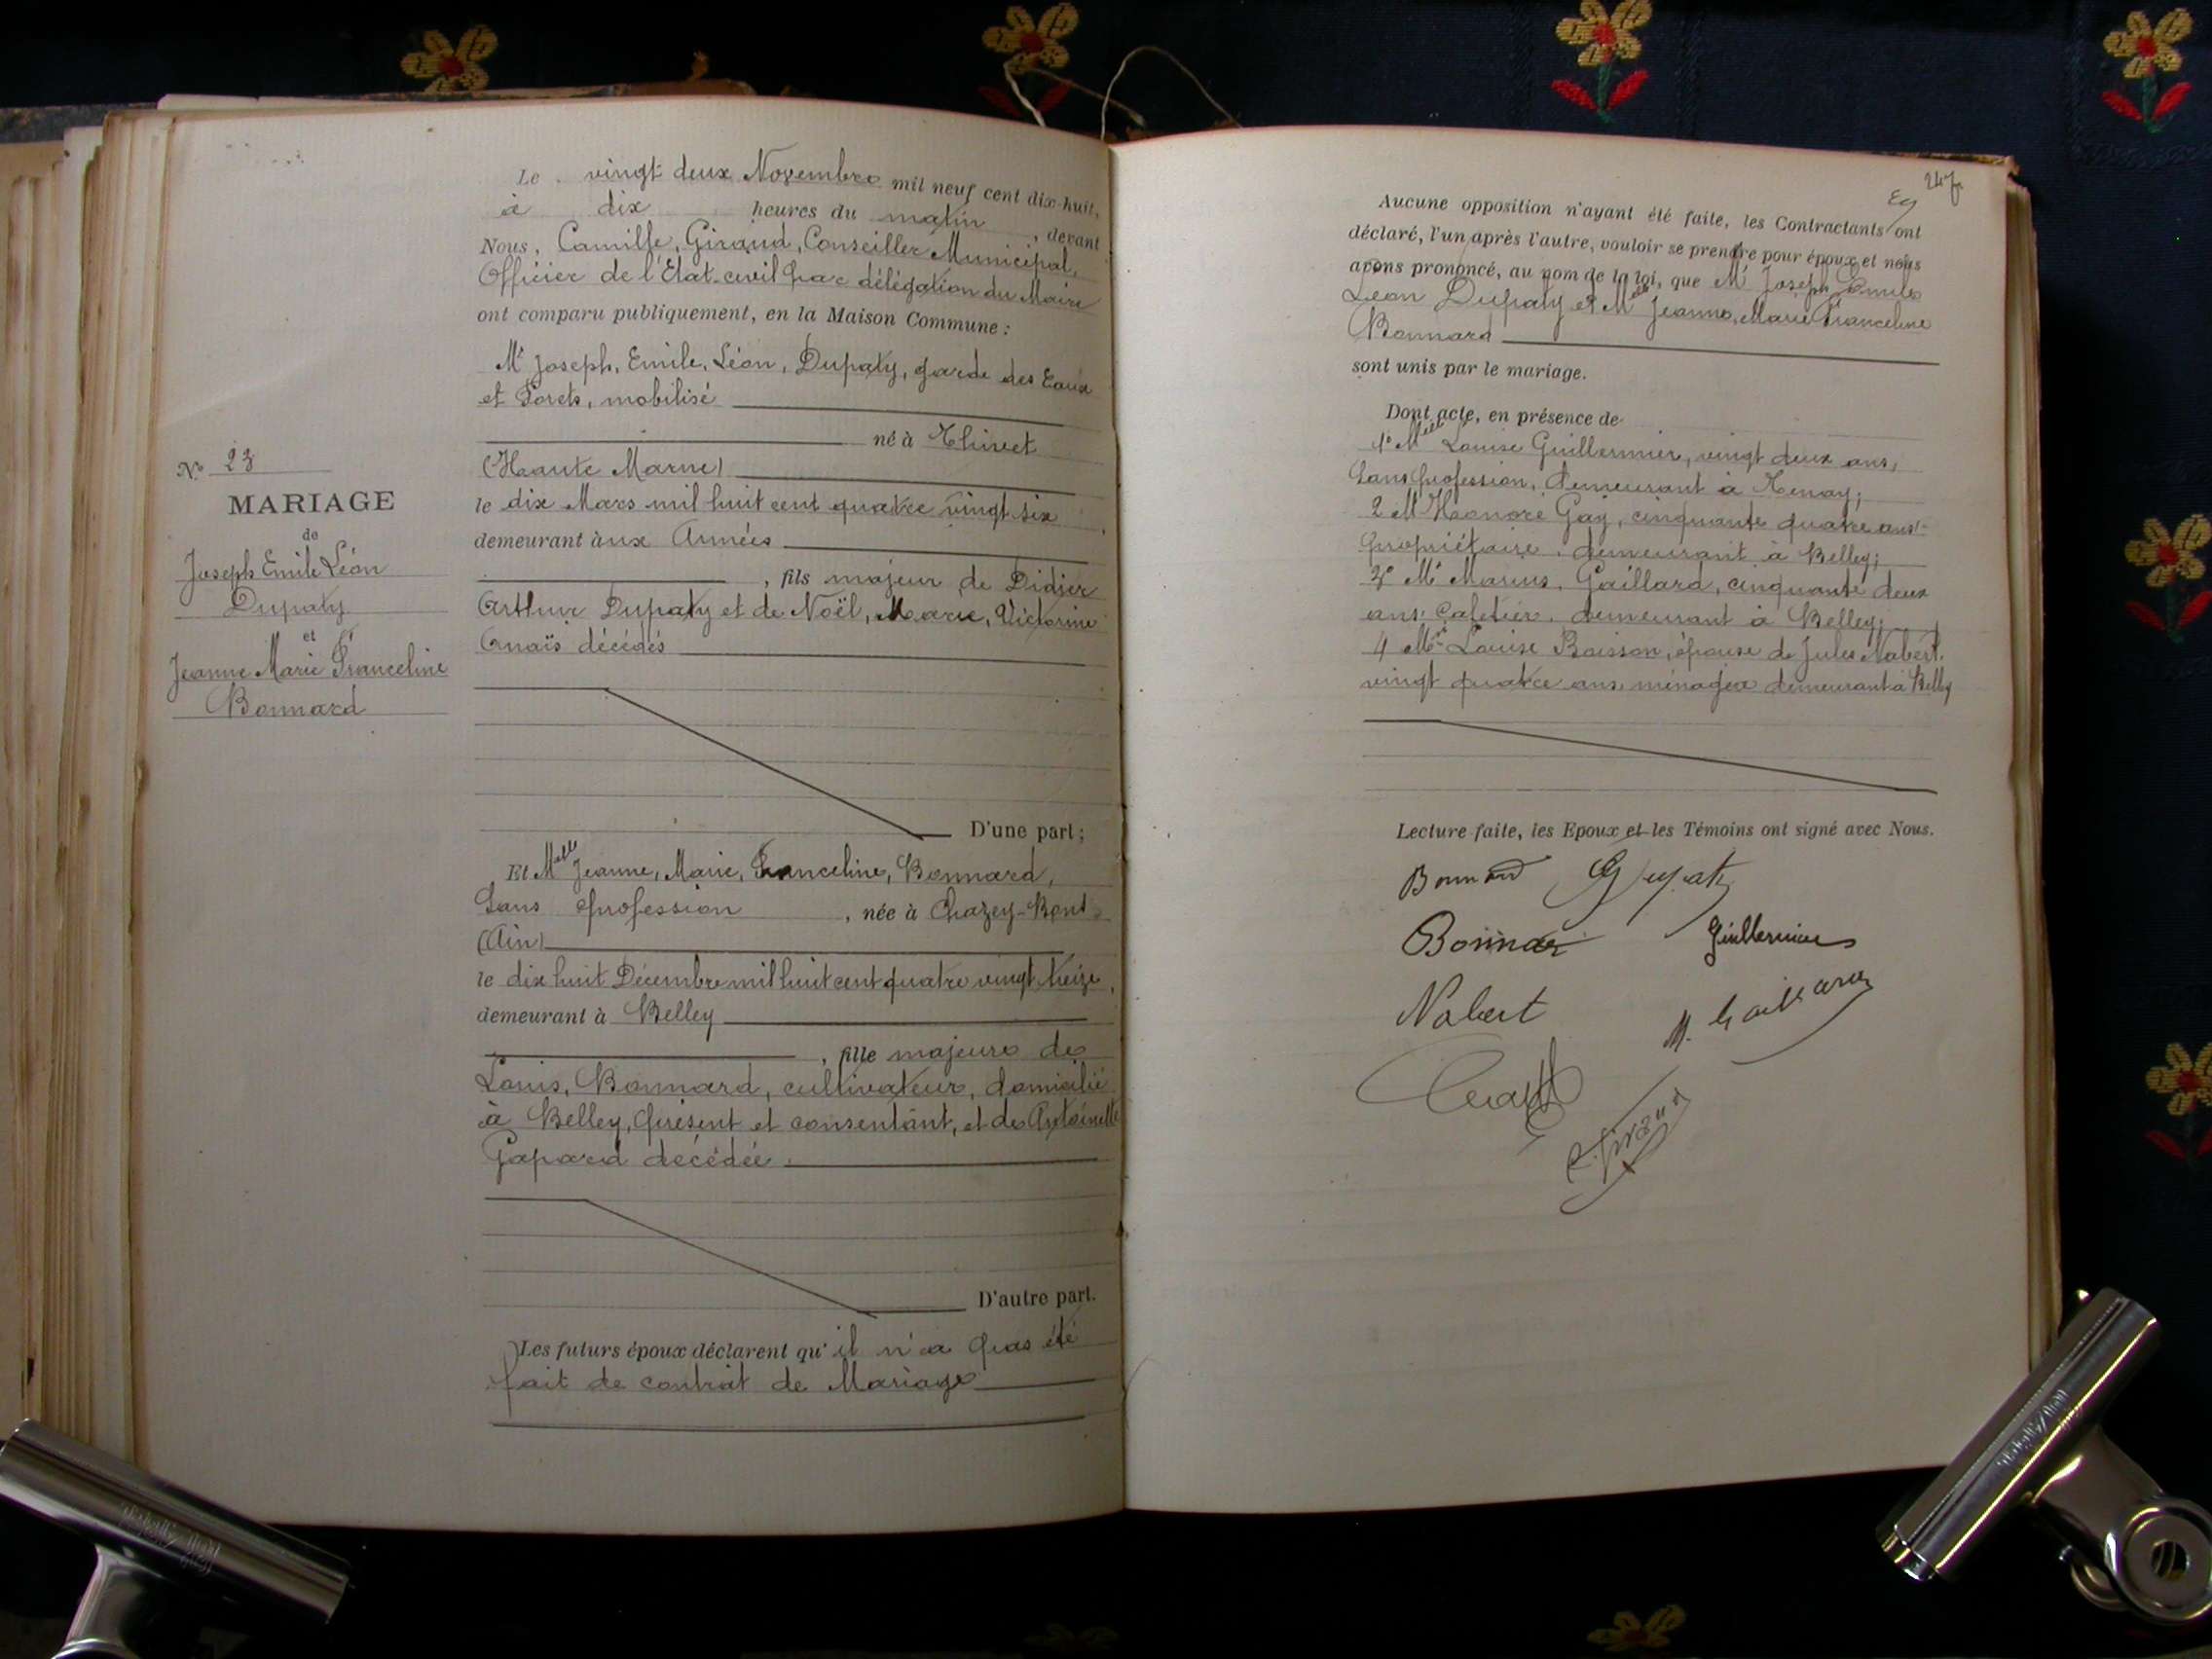 N° 23
MARIAGE
de
Joseph Emile Léon
Dupaty
et
Jeanne Marie Franceline
Bonnard
Le vingt deux Novembre mil neuf cent dix-huit,
à dix heures du matin, devant
Nous, Camille, Giraud, Conseiller Municipal,
Officier de l'Etat-civil par délégation du Maire
ont comparu publiquement, en la Maison Commune :
Mr Joseph, Emile, Léon, Dupaty, garde des Eaux
et Forets, mobilisé
né à Thivet
(Haute Marne)
le dix Mars mil huit cent quatre vingt six
demeurant à ux Armées
, fils majeur de Didier
Arthur Dupaty et de Noël, Marie, Victorine
Anaïs décédés
D'une part ;
Et Melle Jeanne, Marie, Franceline, Bonnard,
Sans profession, née à Chazey-Bons
(Ain)
le dix huit Décembre mil huit cent quatre vingt treize,
demeurant à Belley
, fille majeure de
Louis, Bonnard, cultivateur, domicilié
à Belley, présent et consentant, et de Antoinette
Gapard décédée.
D'autre part.
Les futurs époux déclarent qu'il n'a pas été
fait de contrat de Mariage
247
Aucune opposition n'ayant été faite, les Contractants ont
déclaré, l'un après l'autre, vouloir se prendre pour époux et nous
avons prononcé, au nom de la loi, que Mr Joseph Emile
Léon Dupaty et Melle Jeanne, Marie Franceline
Bonnard
sont unis par le mariage.
Dont acte, en présence de
1° Melle Louise Guillermier, vingt deux ans,
Sans profession, demeurant à Tenay;
2 Mr Honoré Gay, cinquante quatre ans
propriétaire, demeurant à Belley;
3° Mr Marius, Gaillard, cinquante deux
ans, Cafetier, demeurant à Belley;
4 Me Louise Boisson, épouse de Jules Nabert.
vingt quatre ans, ménagère demeurant à Belley
Lecture faite, les Epoux et les Témoins ont signé avec Nous.
Bonnard Dupaty
Bonnard Guillermier
Nabert M. Gaillard
C. Giraud